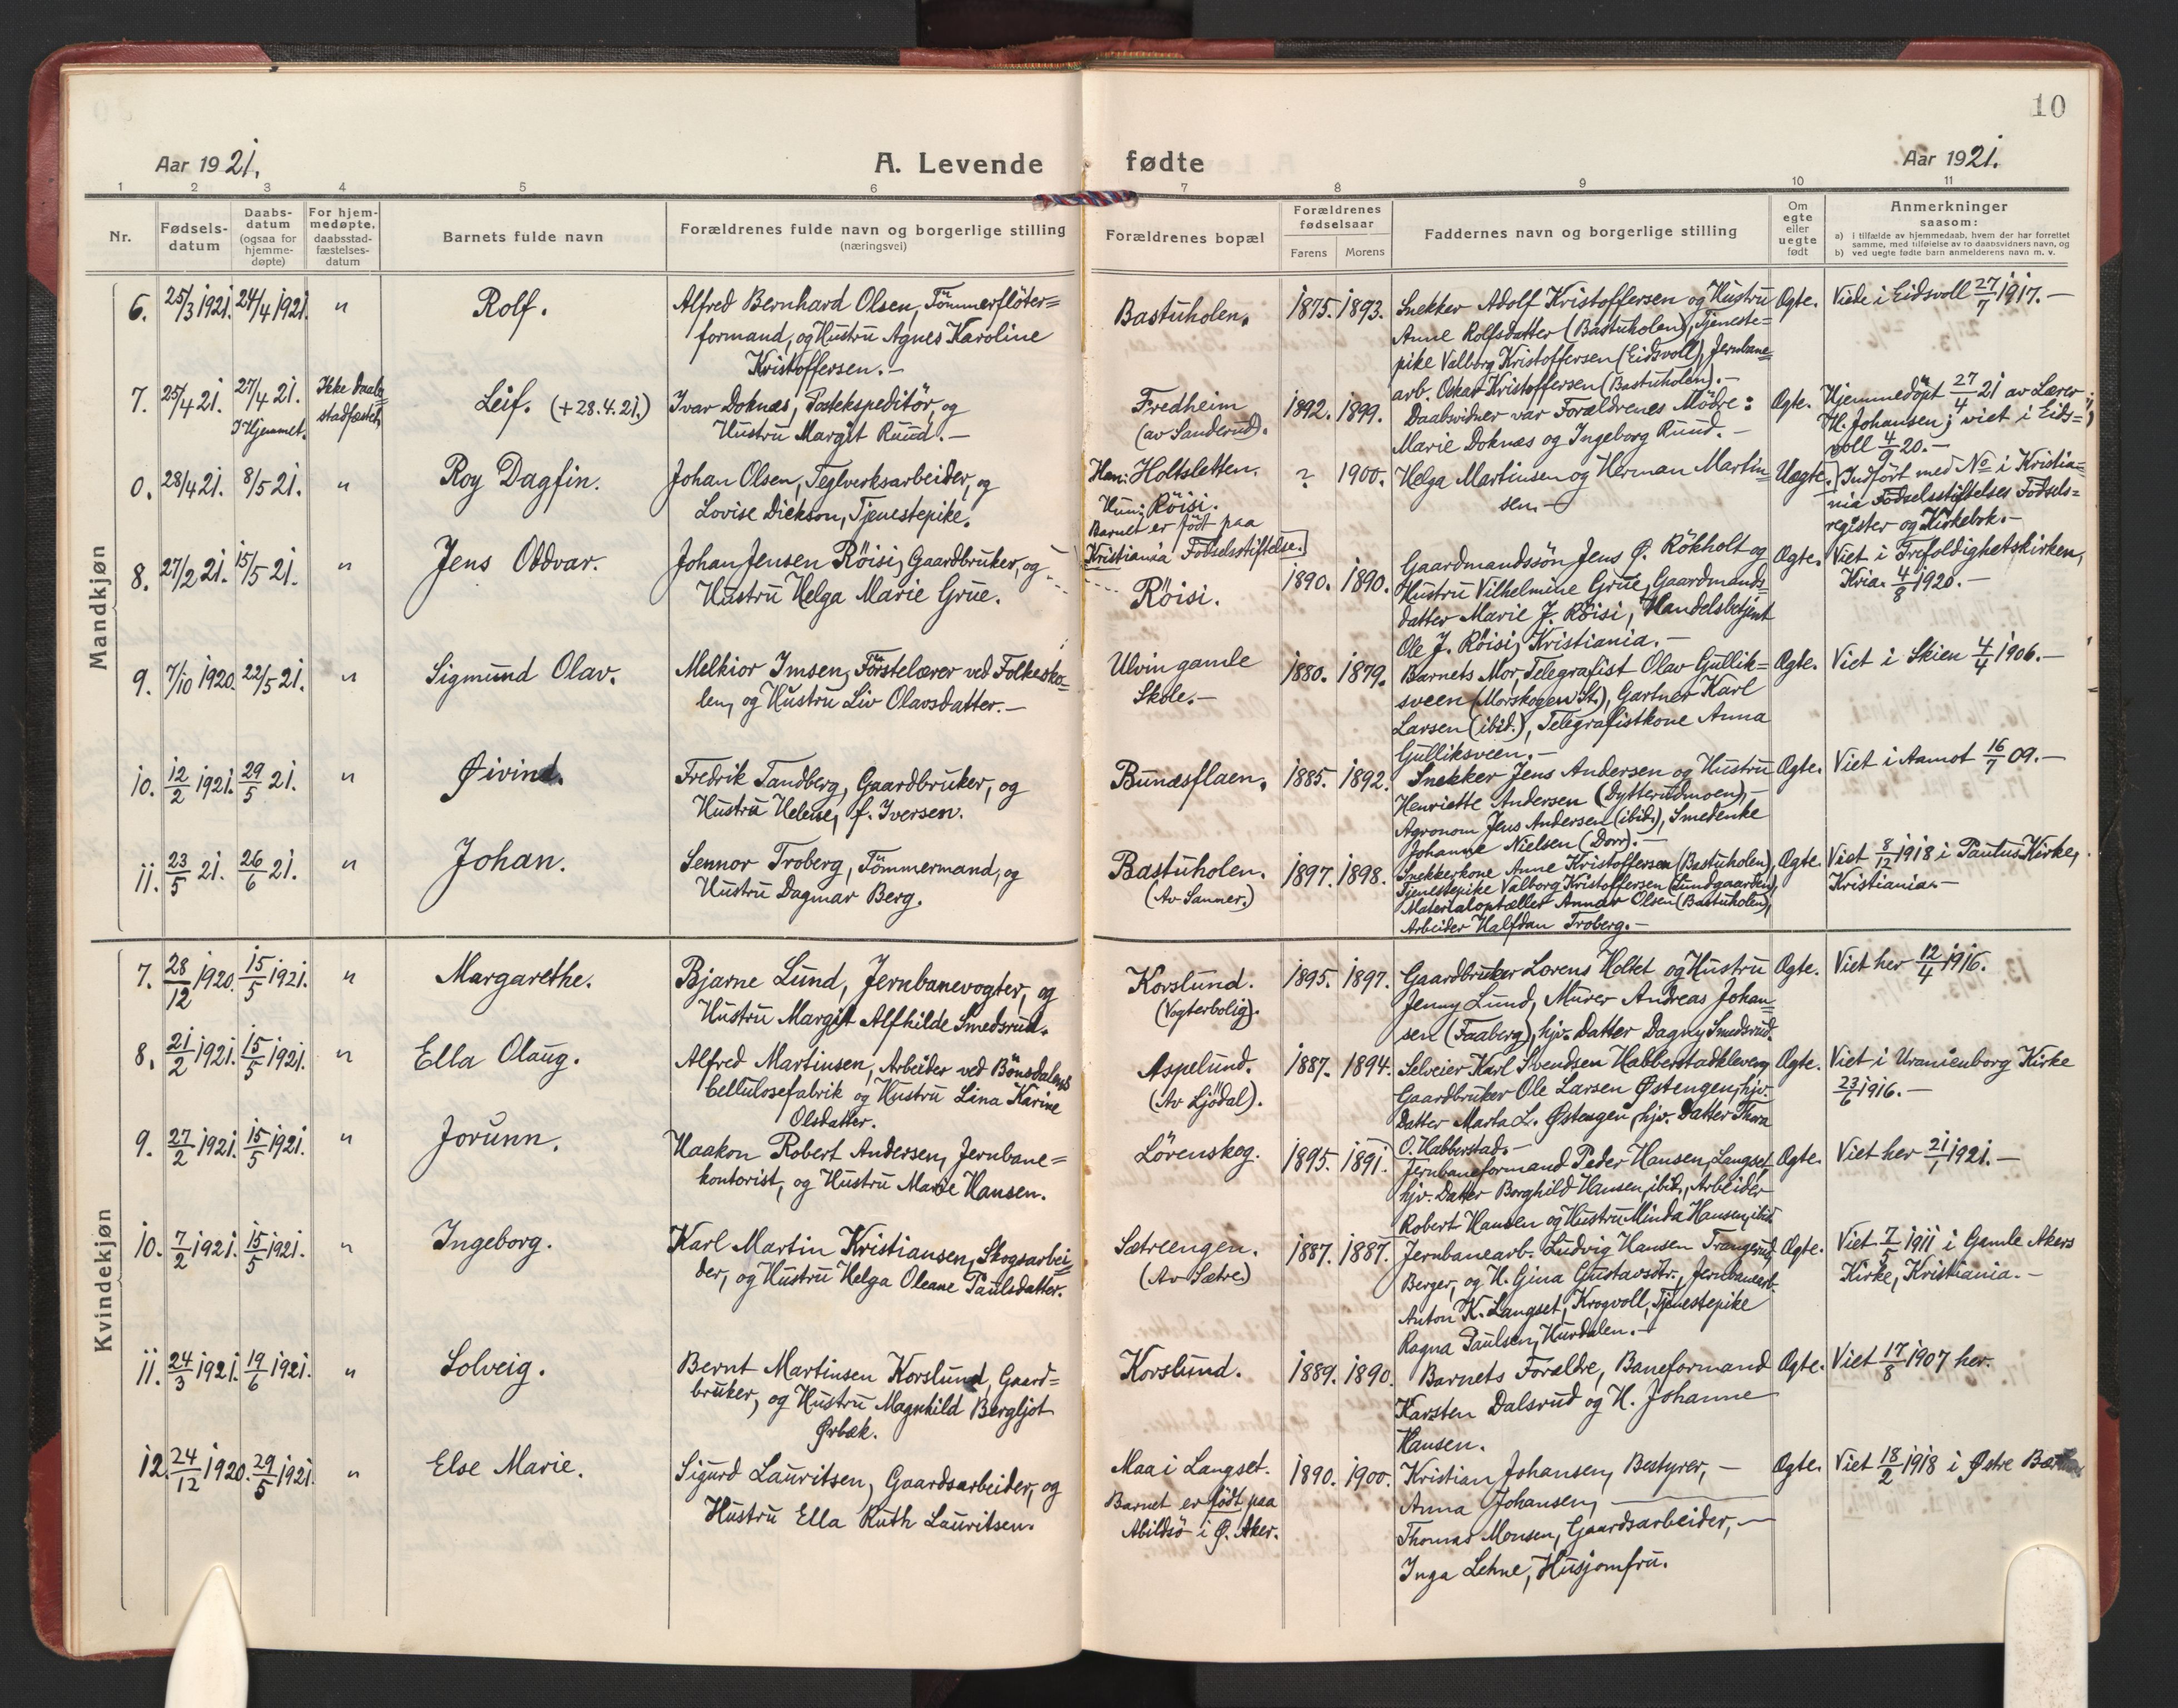 10
Aar 1921.
A. Levende fødte
Aar 1921.
1 2 3 4 5 6 7 8 9 10 11
Nr.
Fødsels-
datum
Daabs-
datum
(ogsaa for
hjemme-
døpte)
For hjem-
medøpte,
daabsstad-
fæstelses-
datum
Barnets fulde navn
Forældrenes fulde navn og borgerlige stilling
(næringsvei)
Forældrenes bopæl
Forældrenes
fødselsaar
Farens Morens
Faddernes navn og borgerlige stilling
Om
egte
eller
uegte
født
Anmerkninger
saasom:
a) i tilfælde av hjemmedaab, hvem der har forrettet
samme, med tilføielse av to daabsvidners navn, og
b) ved uegte fødte barn anmelderens navn m. v.
Mandkjøn
6. 25/3 1921. 24/4 1921. "
Rolf.
Alfred Bernhard Olsen, Tömmerflöter=
formand, og Hustru Agnes Karoline
Kristoffersen.-
Bastuholen.
1875. 1893.
Snekker Adolf Kristoffersen og Hustru
Anne Rolfsdatter (Bastuholen), Tjeneste=
pike Valborg Kristoffersen (Eidsvoll), Jernbane=
arb. Oskar Kristoffersen (Bastuholen).-
Ogte.
Viede i Eidsvoll 27/7 1917.-
7. 25/4 21. 27/4 21.
I Hjemmet.
Ikke daabs=
stadfæstet
Leif. (+28.4.21.)
Ivar Doknæs, Postekspeditör, og
Hustru Margit Ruud.-
Fredheim
(av Sanderud).
1892. 1899.
Daabsvidner var Forældrenes Mödre:
Marie Doknæs og Ingeborg Ruud.-
Ogte.
Hjemmedöpt 27/4 21 av Lærer
H. Johansen; viet i Eids=
voll 4/9 20.-
0. 28/4 21. 8/5 21. "
Roy Dagfin.
Johan Olsen, Teglverksarbeider, og
Lovise Dickson, Tjenestepike.
Han: Holtsletten.
Hun: Röisi.
Barnet er født paa
Kristiania Födselsstiftelse.
? 1900.
Helga Martinsen og Herman Martin=
sen.-
Uegte.
Indfört med No i Kristia=
nia Födselsstiftelses Födsels=
register og Kirkebok.-
8. 27/2 21. 15/5 21. "
Jens Oddvar.
Johan Jensen Röisi, Gaardbruker, og
Hustru Helga Marie Grue.
Röisi.
1890. 1890.
Gaardmandssön Jens Ø. Rökholt og
Hustru Vilhelmine Grue, Gaardmands=
datter Marie J. Röisi, Handelsbetjent
Ole J. Röisi, Kristiania.-
Ogte.
Viet i Trefoldighetskirken,
Kria. 4/8 1920.-
9. 7/10 1920. 22/5 21. "
Sigmund Olav.
Melkior Imsen, Förstelærer ved Folkesko=
len, og Hustru Liv Olavsdatter.-
Ulvin gamle
Skole.-
1880. 1879.
Barnets Mor, Telegrafist Olav Gullik=
sveen (Morskogen St.), Gartner Karl
Larsen (ibid.), Telegrafistkone Anna
Gulliksveen.-
Ogte.
Viet i Skien 4/4 1906.-
10. 12/2 1921. 29/5 21. "
Øivind.
Fredrik Tandberg, Gaardbruker, og
Hustru Helene, f. Iversen.
Bunæsflaen.
1885. 1892.
Snekker Jens Andersen og Hustru
Henriette Andersen (Dytterudmoen),-
Agronom Jens Andersen (ibid.), Smedenke
Johanne Nielsen (Dorr).-
Ogte.
Viet i Aamot 16/7 09.-
11. 23/5 21. 26/6 21. "
Johan.
Sennor Troberg, Tömmermand, og
Hustru Dagmar Berg.
Bastuholen.
(Av Sanner.)
1897. 1898.
Snekkerkone Anne Kristoffersen (Bastuholen),
Tjenestepike Valborg Kristoffersen (Lundgaarden),
Materialoptæller Annar Olsen (Bastuholen),
Arbeider Halfdan Troberg.-
Ogte.
Viet 8/12 1918 i Paulus Kirke,
Kristiania.-
Kvindekjøn
7. 28/12 1920. 15/5 1921. "
Margarethe.
Bjarne Lund, Jernbanevogter, og
Hustru Margit Alfhilde Smedsrud.
Korslund.
(Vogterbolig).
1895. 1897.
Gaardbruker Lorens Holtet og Hustru
Jenny Lund, Murer Andreas Johan=
sen (Faaberg), hjv. Datter Dagny Smedsrud.
Ogte.
Viet her 12/4 1916.
8. 21/2 1921. 15/5 1921. "
Ella Olaug.
Alfred Martinsen, Arbeider ved Bönsdalens
Cellulosefabrik og Hustru Lina Karine
Olsdatter.
Aspelund.
(Av Ljödal).
1887. 1894.
Selveier Karl Svendsen Habberstadkleven,
Gaardbruker Ole Larsen Østengen, hjv.
Datter Marta L. Østengen, hjv. Datter Thora
O. Habberstad.-
Ogte.
Viet i Uranienborg Kirke
23/6 1916.-
9. 27/2 1921. 15/5 1921. "
Jorunn.
Haakon Robert Andersen, Jernbane=
kontorist, og Hustru Marie Hansen.
Lörenskog.
1895. 1891.
Jernbaneformand Peder Hansen, Langset,
hjv. Datter Borghild Hansen, ibid., Arbeider
Robert Hansen og Hustru Minda Hansen, ibid.
Ogte.
Viet her 21/1 1921.-
10. 7/2 1921. 15/5 1921. "
Ingeborg.
Karl Martin Kristiansen, Skogsarbei=
der, og Hustru Helga Oleane Paulsdatter.
Sætreengen.
(Av Sætre)
1887. 1887.
Jernbanearb. Ludvig Hansen Trangerud,
Berger, og H. Gina Gustavsdtr., Jernbanearb.
Anton K. Langset, Krogvoll, Tjenestepike
Ragna Paulsen, Hurdalen.-
Ogte.
Viet 7/5 1911 i Gamle Akers
Kirke, Kristiania.-
11. 24/3 1921. 19/6 1921. "
Solveig.
Bernt Martinsen Korslund, Gaard=
bruker, og Hustru Magnhild Bergljot
Ørbæk.
Korslund.
1889. 1890.
Barnets Forældre, Baneformand
Karsten Dalsrud og H. Johanne
Hansen.
Ogte.
Viet 17/8 1907 her.
12. 24/12 1920. 29/5 1921. "
Else Marie.
Sigurd Lauritsen, Gaardsarbeider, og
Hustru Ella Ruth Lauritsen.
Maai Langset.
Barnet er født paa
Abildsö i Ø. Aker.
1890. 1900.
Kristian Johansen, Bestyrer,-
Anna Johansen,
Thomas Monsen, Gaardsarbeider,-
Inga Lehne, Husjomfru.
Ogte.
Viet 18/2 1918 i Østre